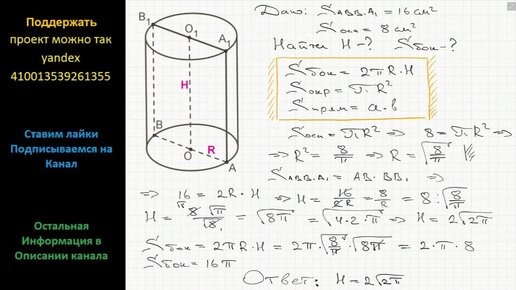 Поддержать
проект можно так
yandex
410013539261355
Ставим лайки
Подписываемся на
Канал
Остальная
Информация в
Описании канала
B₁
O₁
A₁
H
B
O
R
A
Дано: S_ABB₁A₁ = 16 см²
S_осн = 8 см²
Найти H - ? S_бок - ?
S_бок = 2πR·H
S_окр = π·R²
S_прям = a·b
S_осн = πR² ⇒ 8 = πR² ⇒
⇒ R² = 8/π ⇒ R = √(8/π)
S_ABB₁A₁ = AB·BB₁ ⇒
⇒ 16 = 2R·H ⇒ H = 16/2R = 8/R = 8·√(π/8)
H = 8·√π/√8 = √(8π) = √(4·2·π) ⇒ H = 2√(2π)
S_бок = 2πR·H = 2π·√(8/π)·√(8π) = 2·π·8
S_бок = 16π
Ответ: H = 2√(2π)